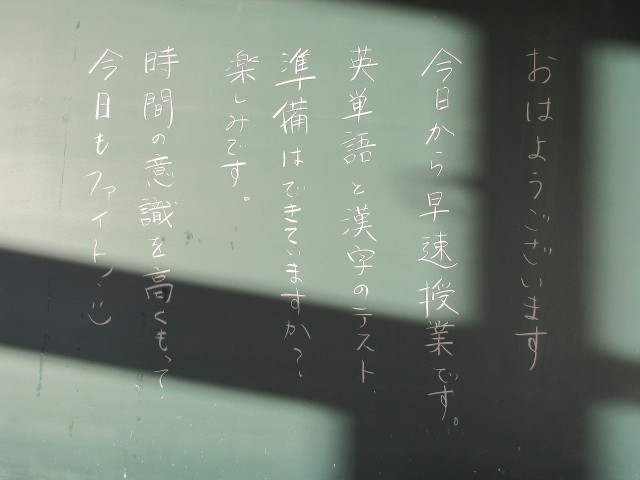 おはようございます
今日から早速授業です。
英単語と漢字のテスト
準備はできていますか?
楽しみです。
時間の意識を高くもって
今日もファイト! :)